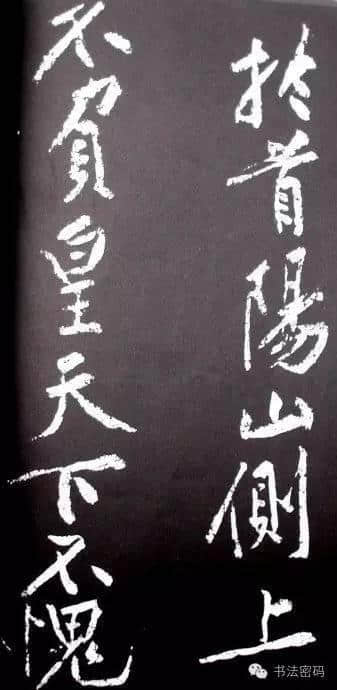 扵首陽山側上
不負皇天下不愧
书法密码